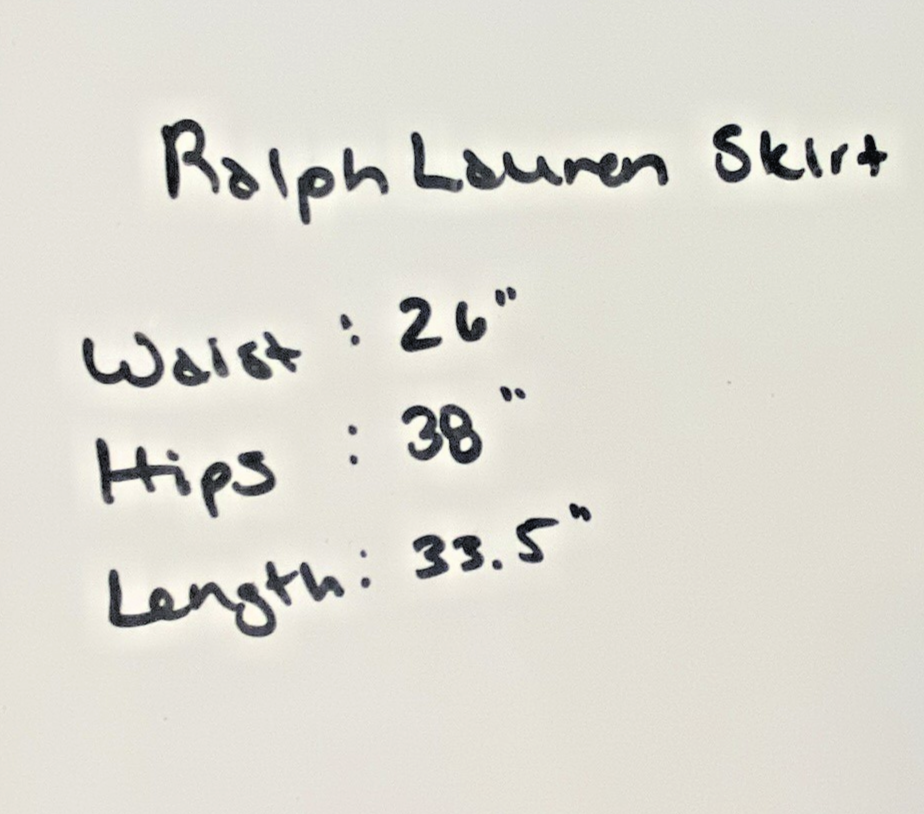 Ralph Lauren Skirt
Waist : 26"
Hips : 38"
Length : 33.5"